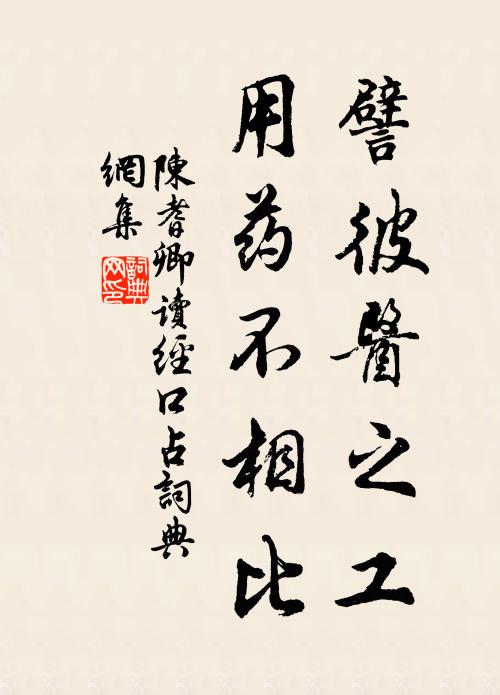 譬彼醫之工
用药不相比
陳耆卿讀經口占詞典
網集
詞典網印